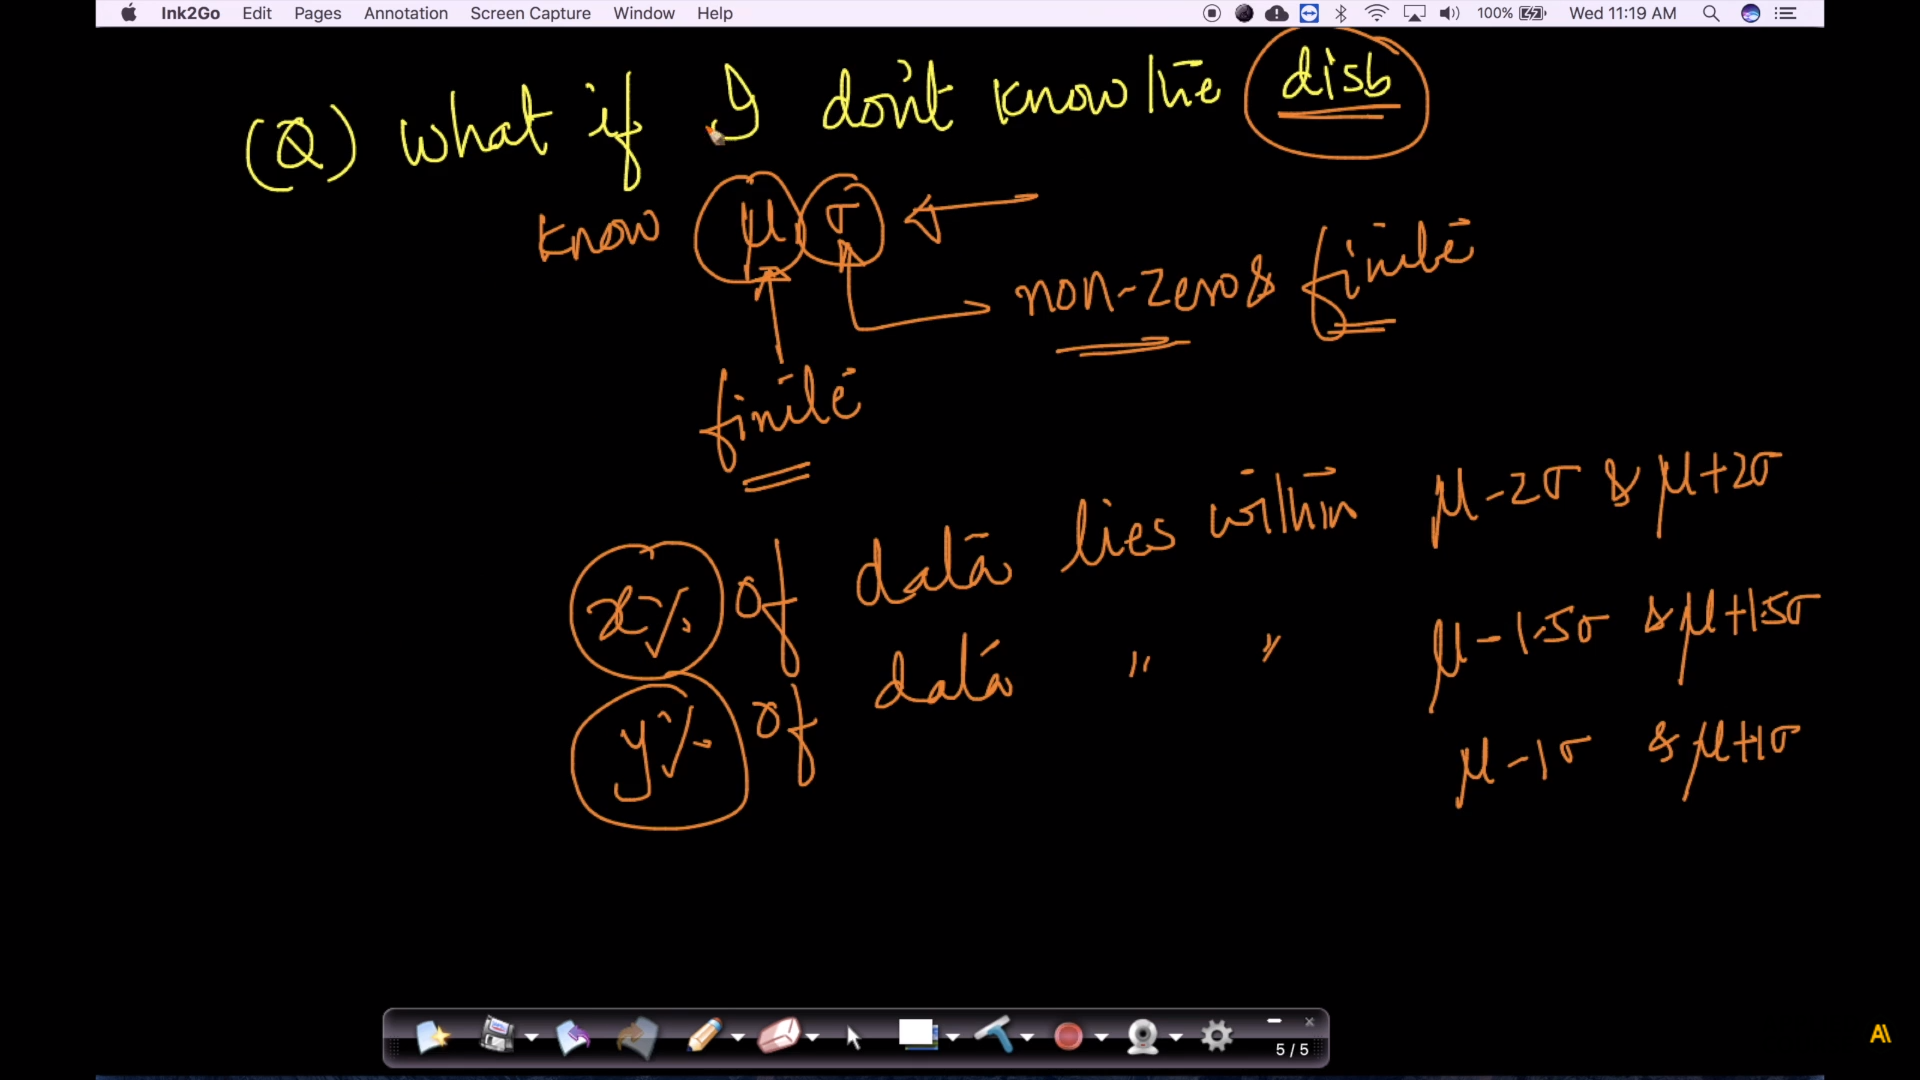 Ink2Go Edit Pages Annotation Screen Capture Window Help 100% Wed 11:19 AM
(Q) what if I don't know the disb
know μ σ
non-zero & finite
finite
x% of data lies within μ-2σ & μ+2σ
y% of data " " μ-1.5σ & μ+1.5σ
μ-1σ & μ+1σ
5 / 5